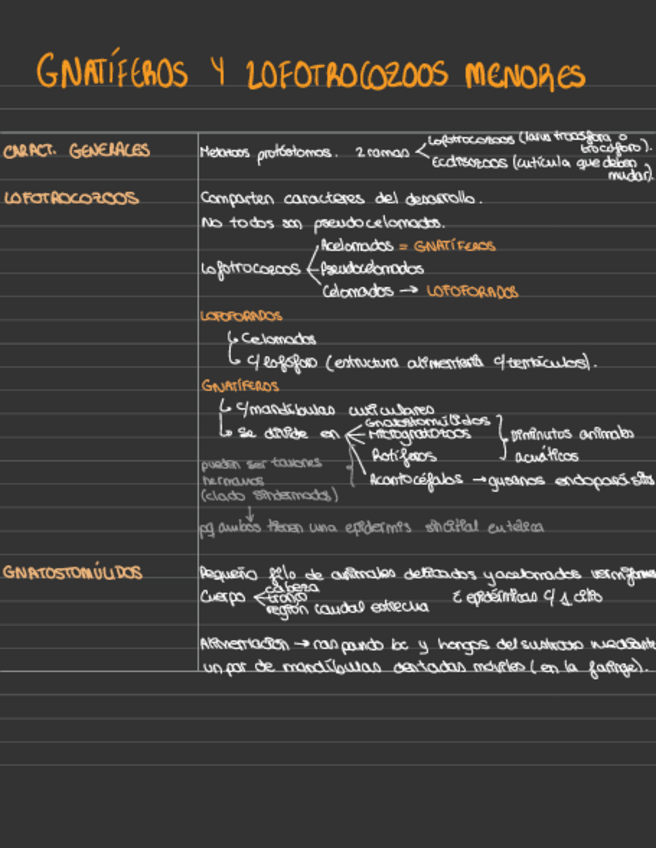 GNATÍFEROS Y LOFOTROCOZOOS MENORES
CARACT. GENERALES
Metazoos protóstomos. 2 ramas
Lofotrocozoos (larva trocófora o
trocóforo).
Ecdisozoos (cutícula que deben
mudar)
LOFOTROCOZOOS
Comparten caracteres del desarrollo.
No todos son pseudocelomados.
Lofotrocozoos
Acelomados = GNATÍFEROS
Pseudocelomados
Celomados → LOFOFORADOS
LOFOFORADOS
↳ Celomados
↳ c/ lofóforo (estructura alimentaria c/tentáculos).
GNATÍFEROS
↳ c/mandíbulas cuticulares
↳ se divide en
Gnatostomúlidos
Micrognatozoos
Rotíferos
diminutos animales
acuáticos
Acantocéfalos → gusanos endoparásitos
pueden ser taxones
hermanos
(clado sindermados)
↓
pq ambos tienen una epidermis sincitial eutélica
GNATOSTOMÚLIDOS
Pequeño filo de animales delicados y acelomados vermiformes
Cuerpo
cabeza
tronco
región caudal estrecha
epidérmicas c/ 1 cilio
Alimentación → raspando bc y hongos del sustrato mediante
un par de mandíbulas dentadas móviles (en la faringe).